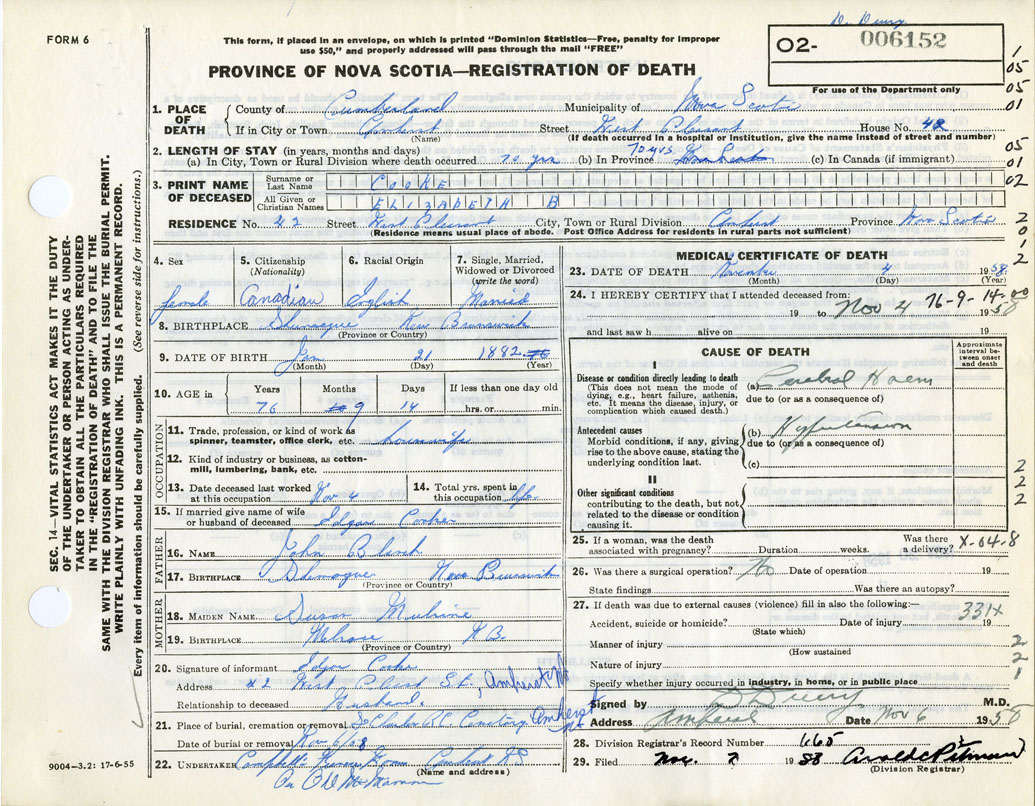 D. Drury
FORM 6
This form, if placed in an envelope, on which is printed "Dominion Statistics—Free, penalty for improper
use $50," and properly addressed will pass through the mail "FREE"
O2- 006152
For use of the Department only
PROVINCE OF NOVA SCOTIA—REGISTRATION OF DEATH
1. PLACE OF DEATH
County of Cumberland Municipality of Nova Scotia
If in City or Town Amherst Street West Pleasant House No. 42
(Name) (If death occurred in a hospital or institution, give the name instead of street and number)
2. LENGTH OF STAY (in years, months and days)
(a) In City, Town or Rural Division where death occurred 70 yrs (b) In Province 70 yrs (c) In Canada (if immigrant)
3. PRINT NAME OF DECEASED
Surname or Last Name COOKE
All Given or Christian Names ELIZABETH B
RESIDENCE No. 42 Street West Pleasant City, Town or Rural Division Amherst Province Nova Scotia
(Residence means usual place of abode. Post Office Address for residents in rural parts not sufficient)
4. Sex
female
5. Citizenship
(Nationality)
Canadian
6. Racial Origin
English
7. Single, Married,
Widowed or Divorced
(write the word)
Married
8. BIRTHPLACE Shemogue New Brunswick
(Province or Country)
9. DATE OF BIRTH Jan 21 1882
(Month) (Day) (Year)
10. AGE in
Years Months Days If less than one day old
76 9 14 hrs. or min.
OCCUPATION
11. Trade, profession, or kind of work as
spinner, teamster, office clerk, etc. housewife
12. Kind of industry or business, as cotton-
mill, lumbering, bank, etc.
13. Date deceased last worked
at this occupation Nov 4
14. Total yrs. spent in
this occupation life
15. If married give name of wife
or husband of deceased Edgar Cooke
FATHER
16. NAME John
17. BIRTHPLACE Shemogue New Brunswick
(Province or Country)
MOTHER
18. MAIDEN NAME Susan
19. BIRTHPLACE Melrose N.B.
(Province or Country)
20. Signature of informant Edgar Cooke
Address 42 West Pleasant St., Amherst NS
Relationship to deceased Husband
21. Place of burial, cremation or removal St Charles RC Cemetery Amherst NS
Date of burial or removal Nov 6/58
22. UNDERTAKER Campbell's Funeral Home Amherst NS
(Name and address)
Per
9004—3.2: 17-6-55
MEDICAL CERTIFICATE OF DEATH
23. DATE OF DEATH November 4 1958
(Month) (Day) (Year)
24. I HEREBY CERTIFY that I attended deceased from: 76-9-14-00
19 to Nov 4 1958
and last saw h alive on 19
CAUSE OF DEATH
Approximate
interval be-
tween onset
and death
I
Disease or condition directly leading to death
(This does not mean the mode of
dying, e.g., heart failure, asthenia,
etc. It means the disease, injury, or
complication which caused death.)
(a) Cerebral Haem
due to (or as a consequence of)
Antecedent causes
Morbid conditions, if any, giving
rise to the above cause, stating the
underlying condition last.
(b) Hypertension
due to (or as a consequence of)
(c)
II
Other significant conditions
contributing to the death, but not
related to the disease or condition
causing it.
25. If a woman, was the death
associated with pregnancy? Duration weeks. Was there
a delivery? X-04-8
26. Was there a surgical operation? No Date of operation 19
State findings Was there an autopsy?
27. If death was due to external causes (violence) fill in also the following:—
331X
Accident, suicide or homicide? Date of injury 19
(State which)
Manner of injury
(How sustained
Nature of injury
Specify whether injury occurred in industry, in home, or in public place
Signed by D Drury M.D.
Address Amherst Date Nov 6 1958
28. Division Registrar's Record Number 665
29. Filed Nov. 7 1958
(Division Registrar)
SEC. 14—VITAL STATISTICS ACT MAKES IT THE DUTY
OF THE UNDERTAKER OR PERSON ACTING AS UNDER-
TAKER TO OBTAIN ALL THE PARTICULARS REQUIRED
IN THE "REGISTRATION OF DEATH" AND TO FILE THE
SAME WITH THE DIVISION REGISTRAR WHO SHALL ISSUE THE BURIAL PERMIT.
WRITE PLAINLY WITH UNFADING INK. THIS IS A PERMANENT RECORD.
Every item of information should be carefully supplied. (See reverse side for instructions.)
1
05
05
01
05
01
02
2
0
1
2
2
2
2
2
2
1